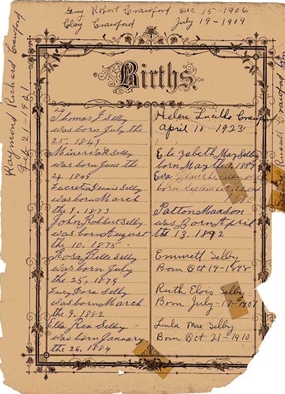 Guy Robert Crawford Dec 15-1906
Clay Crawford July 19-1909
Raymond Richard Crawford
Feb 21-1921
Births.
Thomas J Selby
was born July the
25, 1849
Minervia Selby
was born June the
24. 1849
Lucretia Selby
was born March
the 9, 1873
John Robert Selby
was born August
the 10, 1875.
Rosa Bella Selby
was born July
the 25, 1879
Lucy Selby
was born March
the 9, 1882
Etta Rea Selby
was born January
the 26, 1884
Helen Luella Crawford
April 10-1923
Elizabeth May Selby
born May the 1887
Eva
born September
Patton Mardon
was Born April
the 13, 1892
Emmett Selby
Born Oct 19-1888
Ruth Elois Selby
Born July-17-1907
Linda Mae Selby
Born Oct 21-1910
Crawford